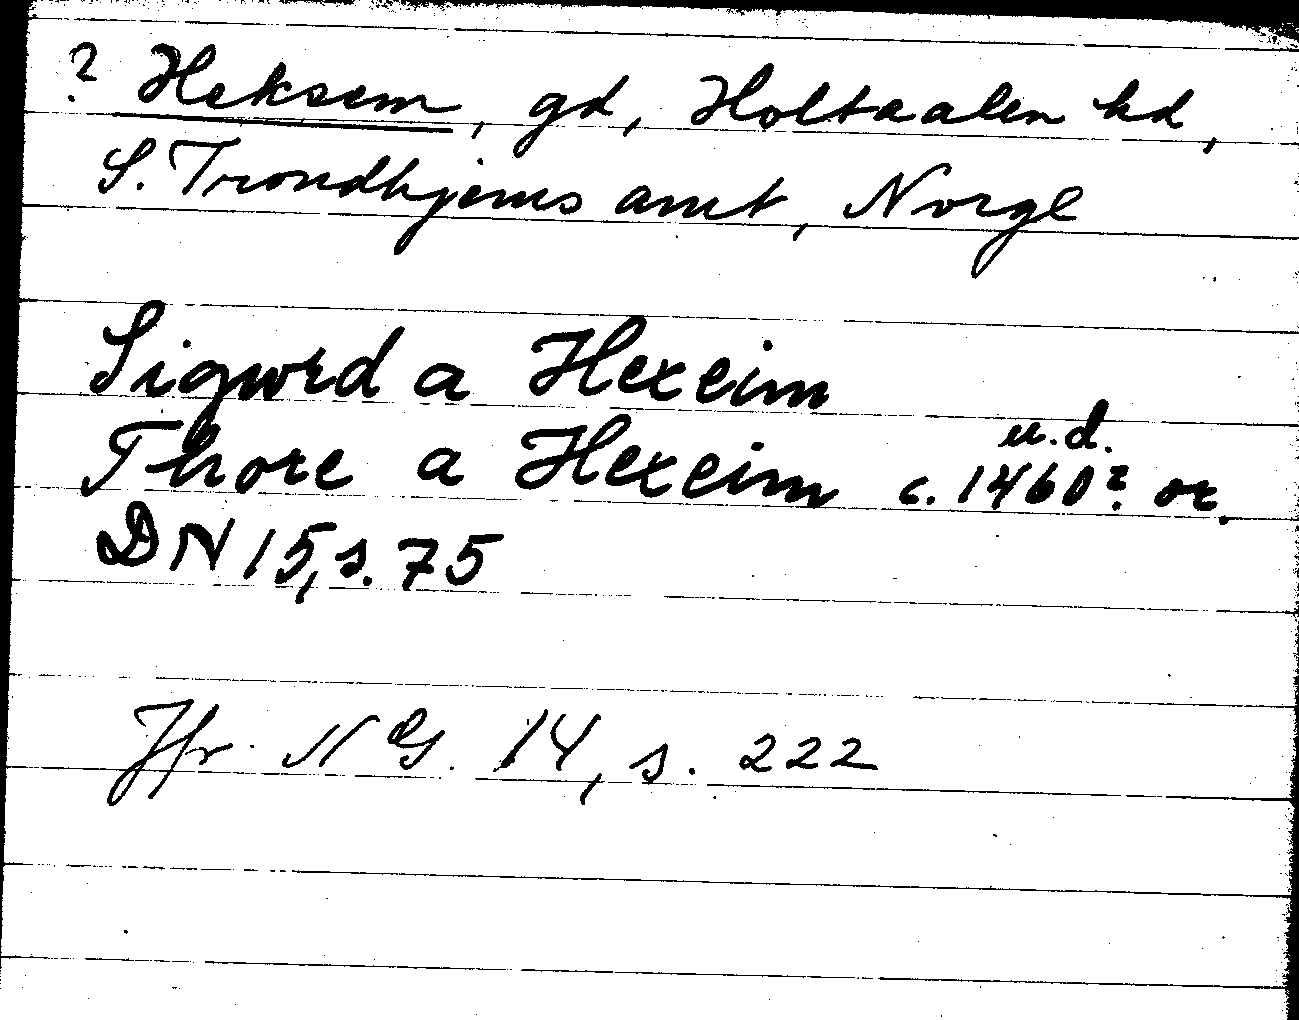 ? Heksem, gd, Holtaalen hd,
S. Trondhjems amt, Norge
Sigwrd a Hexeim
Thore a Hexeim c. 1460? or.
u.d.
DN 15, s. 75
Jfr. NG. 14, s. 222